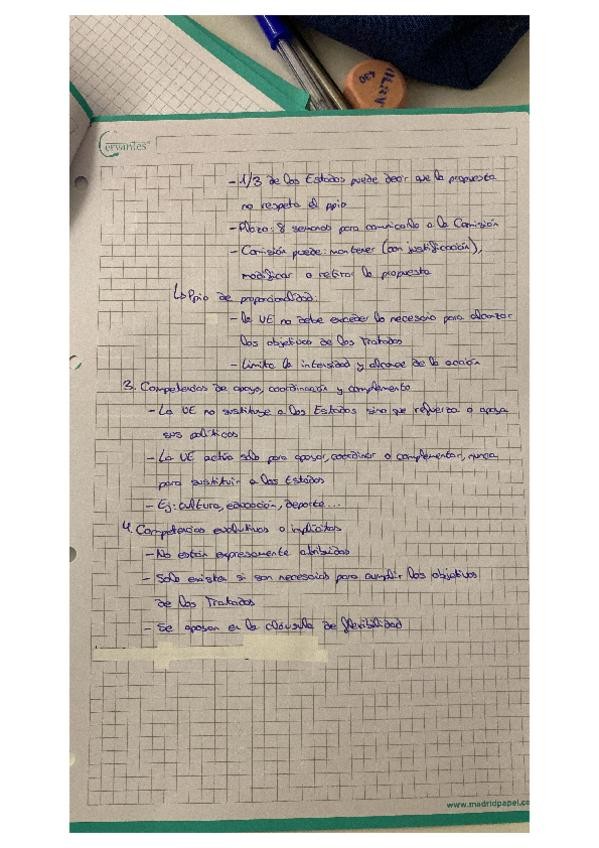 Cervantes
- 1/3 de los Estados puede decir que la propuesta
no respeta el ppio
- Plazo: 8 semanas para comunicarlo a la Comisión
- Comisión puede: mantener (con justificación),
modificar o retirar la propuesta
↳ Ppio de proporcionalidad:
- La UE no debe exceder lo necesario para alcanzar
los objetivos de los Tratados
- Limita la intensidad y alcance de la acción
3. Competencias de apoyo, coordinación y complemento
- La UE no sustituye a los Estados sino que refuerza o apoya
sus políticas
- La UE actúa solo para apoyar, coordinar o complementar, nunca
para sustituir a los Estados
- Ej: cultura, educación, deporte...
4. Competencias evolutivas o implícitas
- No están expresamente atribuidas
- Solo existen si son necesarias para cumplir los objetivos
de los Tratados
- Se apoyan en la cláusula de flexibilidad
www.madridpapel.co